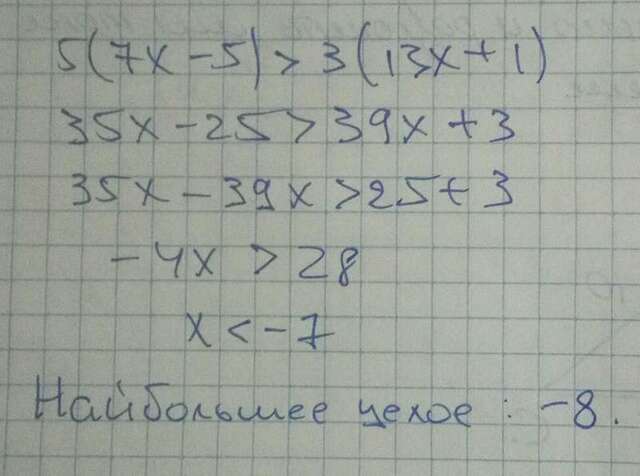 5(7x-5) > 3(13x+1)
35x-25 > 39x+3
35x-39x > 25+3
-4x > 28
x < -7
Наибольшее целое: -8.